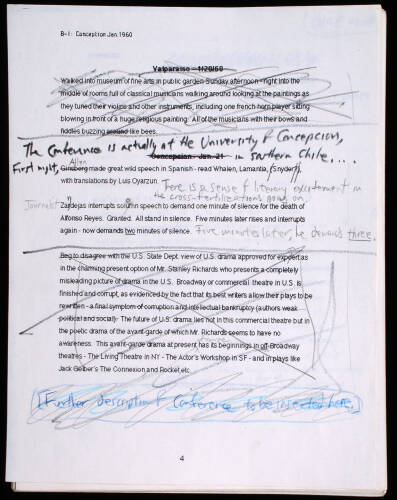 B-I: Conception Jan 1960
Valparaiso - 1/20/60
Walked into museum of fine arts in public garden Sunday afternoon - right into the
middle of rooms full of classical musicians walking around looking at the paintings as
they tuned their violins and other instruments, including one french-horn player sitting
blowing in front of a huge religious painting. All of the musicians with their bows and
fiddles buzzing around like bees.
The Conference is actually at the University of Concepcion,
Concepcion - Jan. 21 in Southern Chile....
First night, Allen
Ginsberg made great wild speech in Spanish - read Whalen, Lamantia, (Snyder)
with translations by Luis Oyarzun. There is a sense of literary excitement in
the cross-fertilizations going on.
Journalist Zapiejas interrupts solumn speech to demand one minute of silence for the death of
Alfonso Reyes. Granted. All stand in silence. Five minutes later rises and interrupts
again - now demands two minutes of silence. Five minutes later, he demands three.
Beg to disagree with the U.S. State Dept. view of U.S. drama approved for export as
in the charming present option of Mr. Stanley Richards who presents a completely
misleading picture of drama in the U.S. Broadway or commercial theatre in U.S. is
finished and corrupt, as evidenced by the fact that its best writers allow their plays to be
rewritten - a final symptom of corruption and intellectual bankruptcy (authors weak
political and social) - The future of U.S. drama lies not in this commercial theatre but in
the poetic drama of the avant-garde of which Mr. Richards seems to have no
awareness. This avant-garde drama at present has its beginnings in off-Broadway
theatres - The Living Theatre in NY - The Actor's Workshop in SF - and in plays like
Jack Gelber's The Connexion and Rocket etc.
[Further Description of Conference to be inserted here.]
4